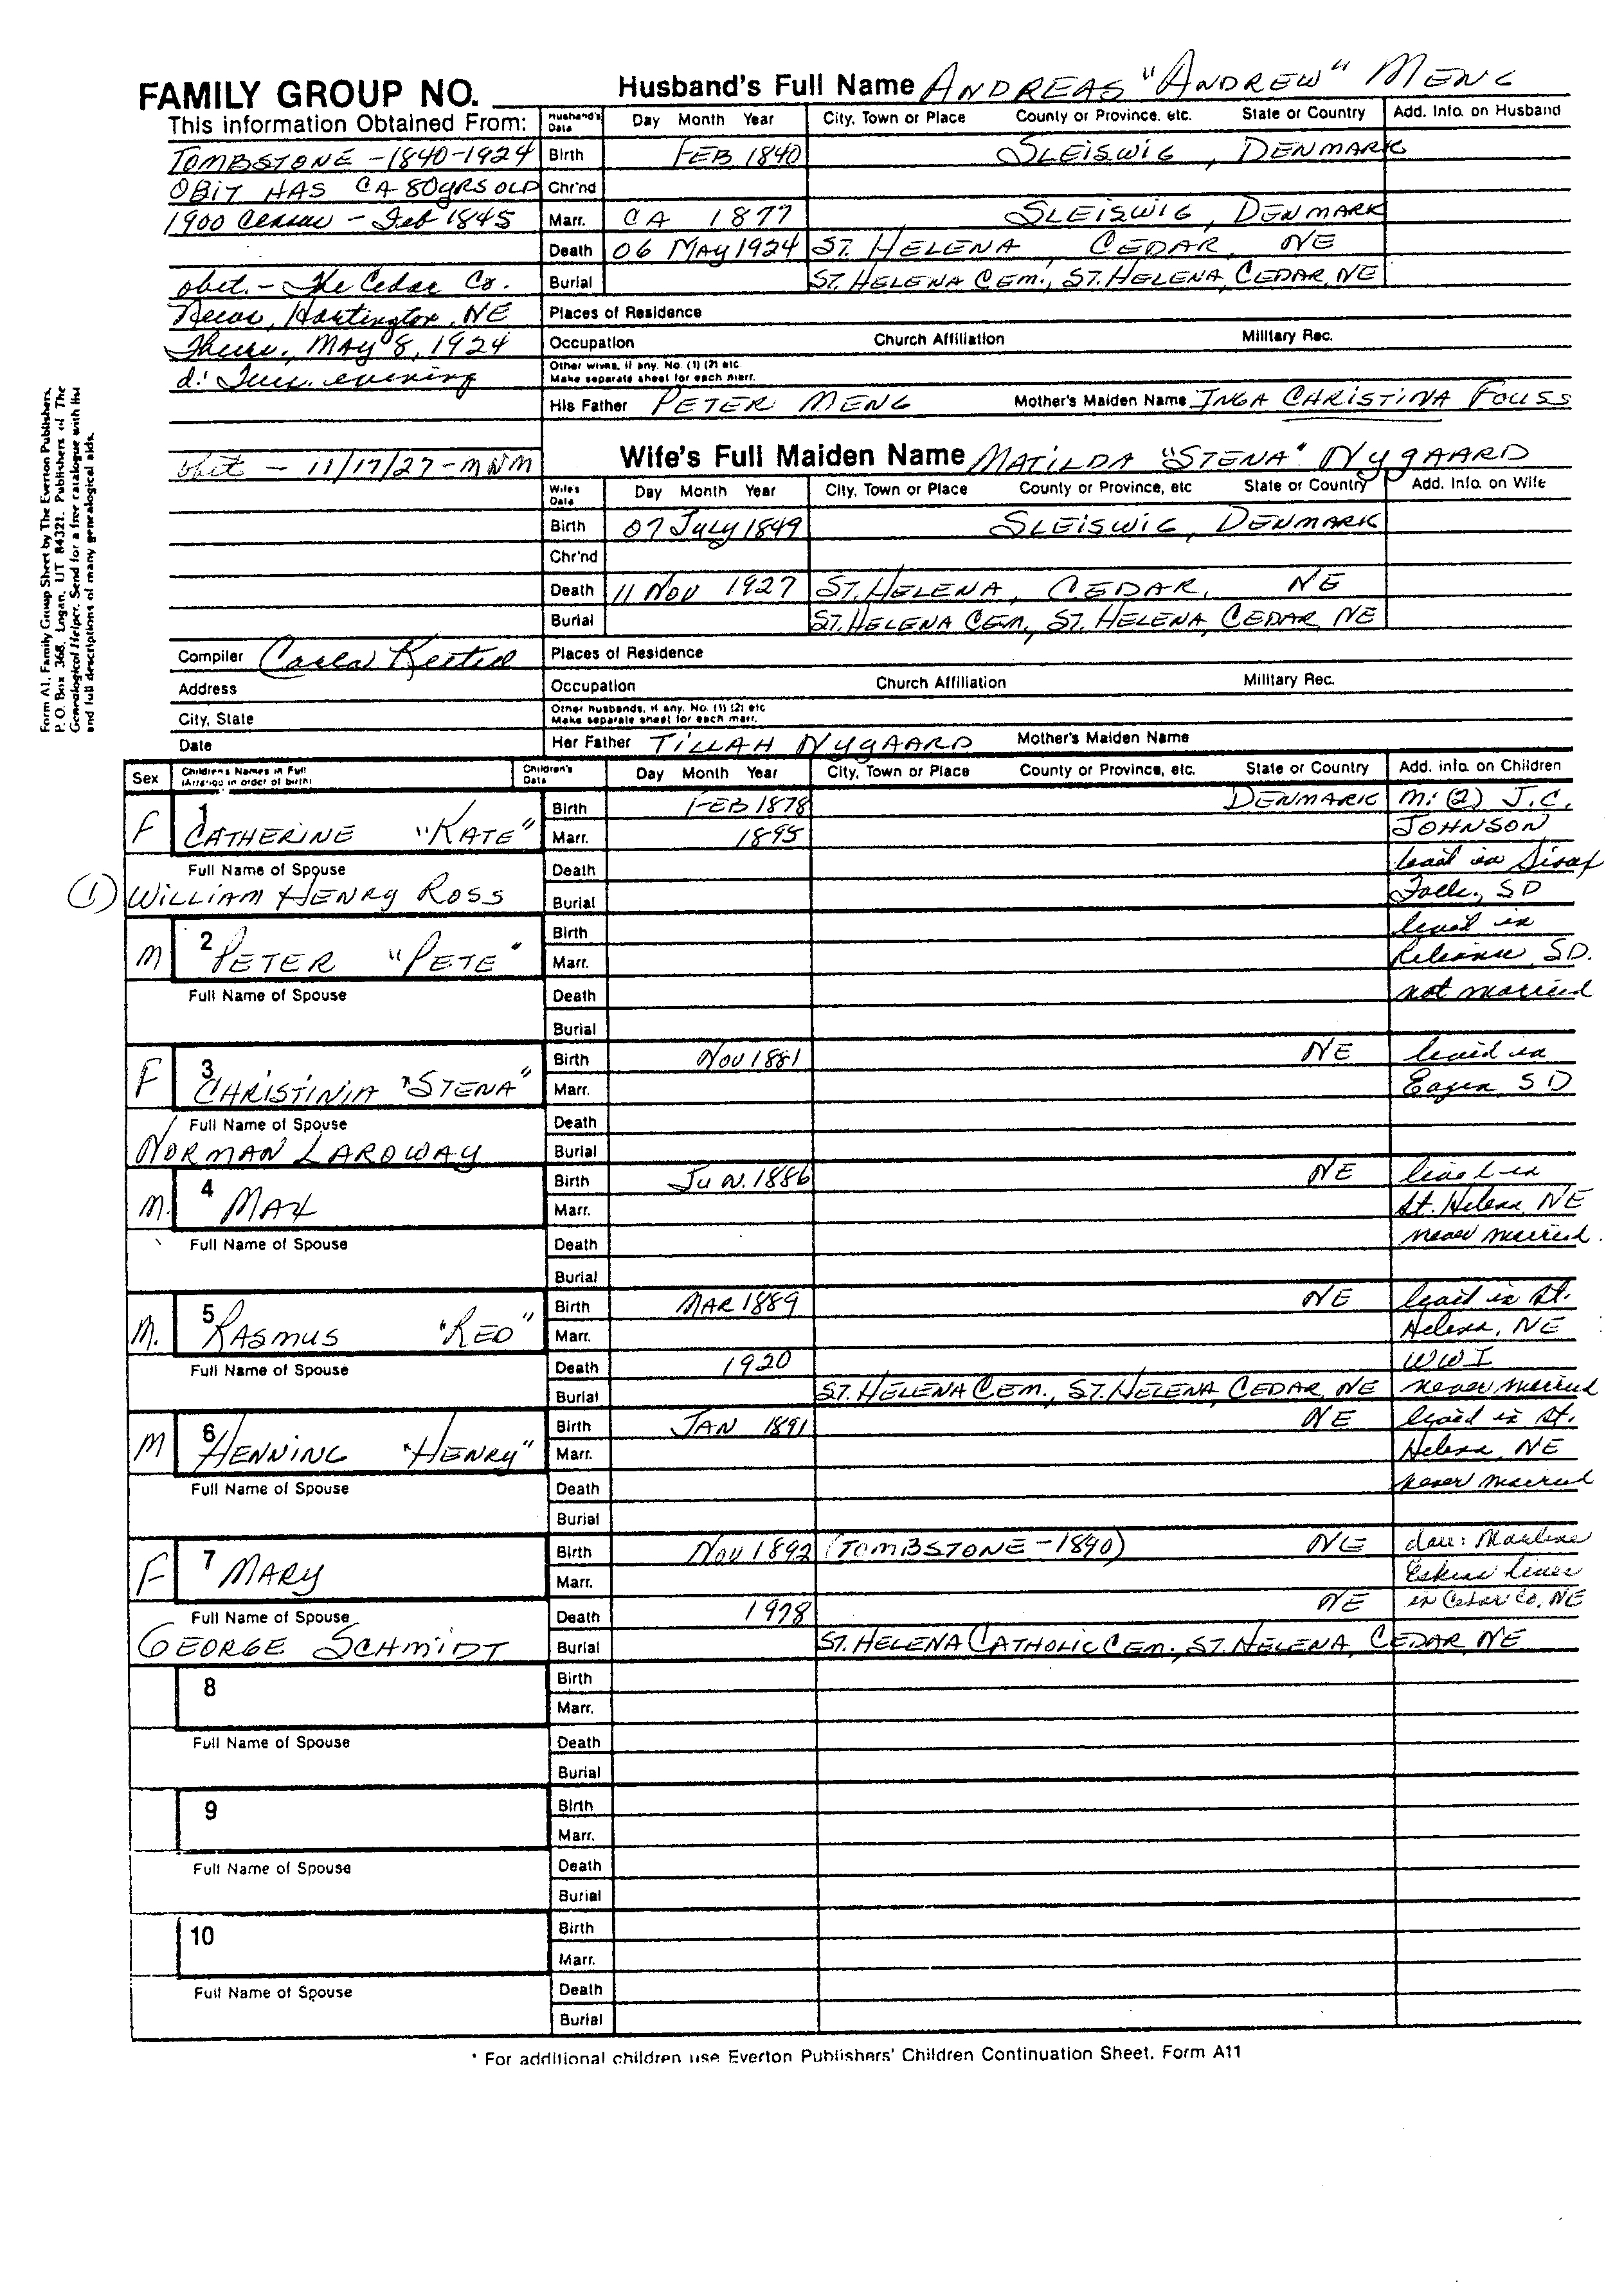 FAMILY GROUP NO. Husband's Full Name ANDREAS "ANDREW" MENG
This information Obtained From: Husband's Data Day Month Year City, Town or Place County or Province, etc. State or Country Add. Info. on Husband
TOMBSTONE - 1840-1924 Birth FEB 1840 SLEISWIG, DENMARK
OBIT HAS CA 80 YRS OLD Chr'nd
1900 Census - Feb 1845 Marr. CA 1877 SLEISWIG, DENMARK
Death 06 MAY 1924 ST. HELENA, CEDAR, NE
obit. - The Cedar Co. Burial ST. HELENA CEM., ST. HELENA, CEDAR, NE
News, Hartington, NE Places of Residence
Thurs., MAY 8, 1924 Occupation Church Affiliation Military Rec.
d: Tues. evening Other wives, if any. No. (1) (2) etc. Make separate sheet for each marr.
His Father PETER MENG Mother's Maiden Name INGA CHRISTINA FOUSS
obit - 11/17/27 - MNM Wife's Full Maiden Name MATILDA "STENA" NYGAARD
Wife's Data Day Month Year City, Town or Place County or Province, etc State or Country Add. Info. on Wife
Birth 07 July 1849 SLEISWIG, DENMARK
Chr'nd
Death 11 NOV 1927 ST. HELENA, CEDAR, NE
Burial ST. HELENA CEM., ST. HELENA, CEDAR, NE
Compiler Carla Places of Residence
Address Occupation Church Affiliation Military Rec.
City, State Other husbands, if any. No. (1) (2) etc Make separate sheet for each marr.
Date Her Father TILLAH NYGAARD Mother's Maiden Name
Form A1. Family Group Sheet by The Everton Publishers,
P.O. Box 368, Logan, UT 84321. Publishers of The
Genealogical Helper. Send for a free catalogue with list
and full descriptions of many genealogical aids.
Sex Children's Names in Full (Arrange in order of birth) Children's Data Day Month Year City, Town or Place County or Province, etc. State or Country Add. info. on Children
F 1 CATHERINE "KATE" Birth FEB 1878 DENMARK m: (2) J.C.
Marr. 1895 JOHNSON
Full Name of Spouse Death lived in Sioux
(1) WILLIAM HENRY ROSS Burial Falls, SD
M 2 PETER "PETE" Birth lived in
Marr. Reliance, SD.
Full Name of Spouse Death not married
Burial
F 3 CHRISTINIA "STENA" Birth NOV 1881 NE lived in
Marr. SD
Full Name of Spouse Death
NORMAN LAROWAY Burial
M. 4 MAX Birth JUN. 1886 NE lived in
Marr. St. Helena, NE
Full Name of Spouse Death never married.
Burial
M. 5 RASMUS "RED" Birth MAR 1889 NE lived in St.
Marr. Helena, NE
Full Name of Spouse Death 1920 WWI
Burial ST. HELENA CEM., ST. HELENA, CEDAR, NE never married
M 6 HENNING "HENRY" Birth JAN 1891 NE lived in St.
Marr. Helena, NE
Full Name of Spouse Death never married
Burial
F 7 MARY Birth NOV 1892 (TOMBSTONE - 1890) NE dau: Marlene
Marr. lives
Full Name of Spouse Death 1978 NE in Cedar Co, NE
GEORGE SCHMIDT Burial ST. HELENA CATHOLIC CEM., ST. HELENA, CEDAR, NE
8 Birth
Marr.
Full Name of Spouse Death
Burial
9 Birth
Marr.
Full Name of Spouse Death
Burial
10 Birth
Marr.
Full Name of Spouse Death
Burial
* For additional children use Everton Publishers' Children Continuation Sheet. Form A11